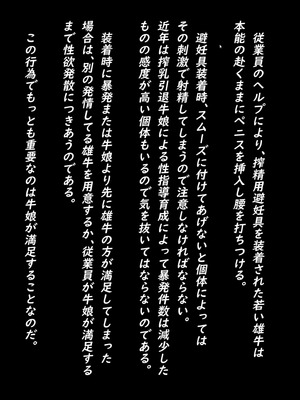 従業員のヘルプにより、搾精用避妊具を装着された若い雄牛は
本能の赴くままにペニスを挿入し腰を打ちつける。
避妊具装着時、スムーズに付けてあげないと個体によっては
その刺激で射精してしまうので注意しなければならない。
近年は搾乳引退牛娘による性指導育成によって暴発件数は減少した
ものの感度が高い個体もいるので気を抜いてはならないのである。
装着時に暴発または牛娘より先に雄牛の方が満足してしまった
場合は、別の発情してる雄牛を用意するか、従業員が牛娘が満足する
まで性欲発散につきあうのである。
この行為でもっとも重要なのは牛娘が満足することなのだ。